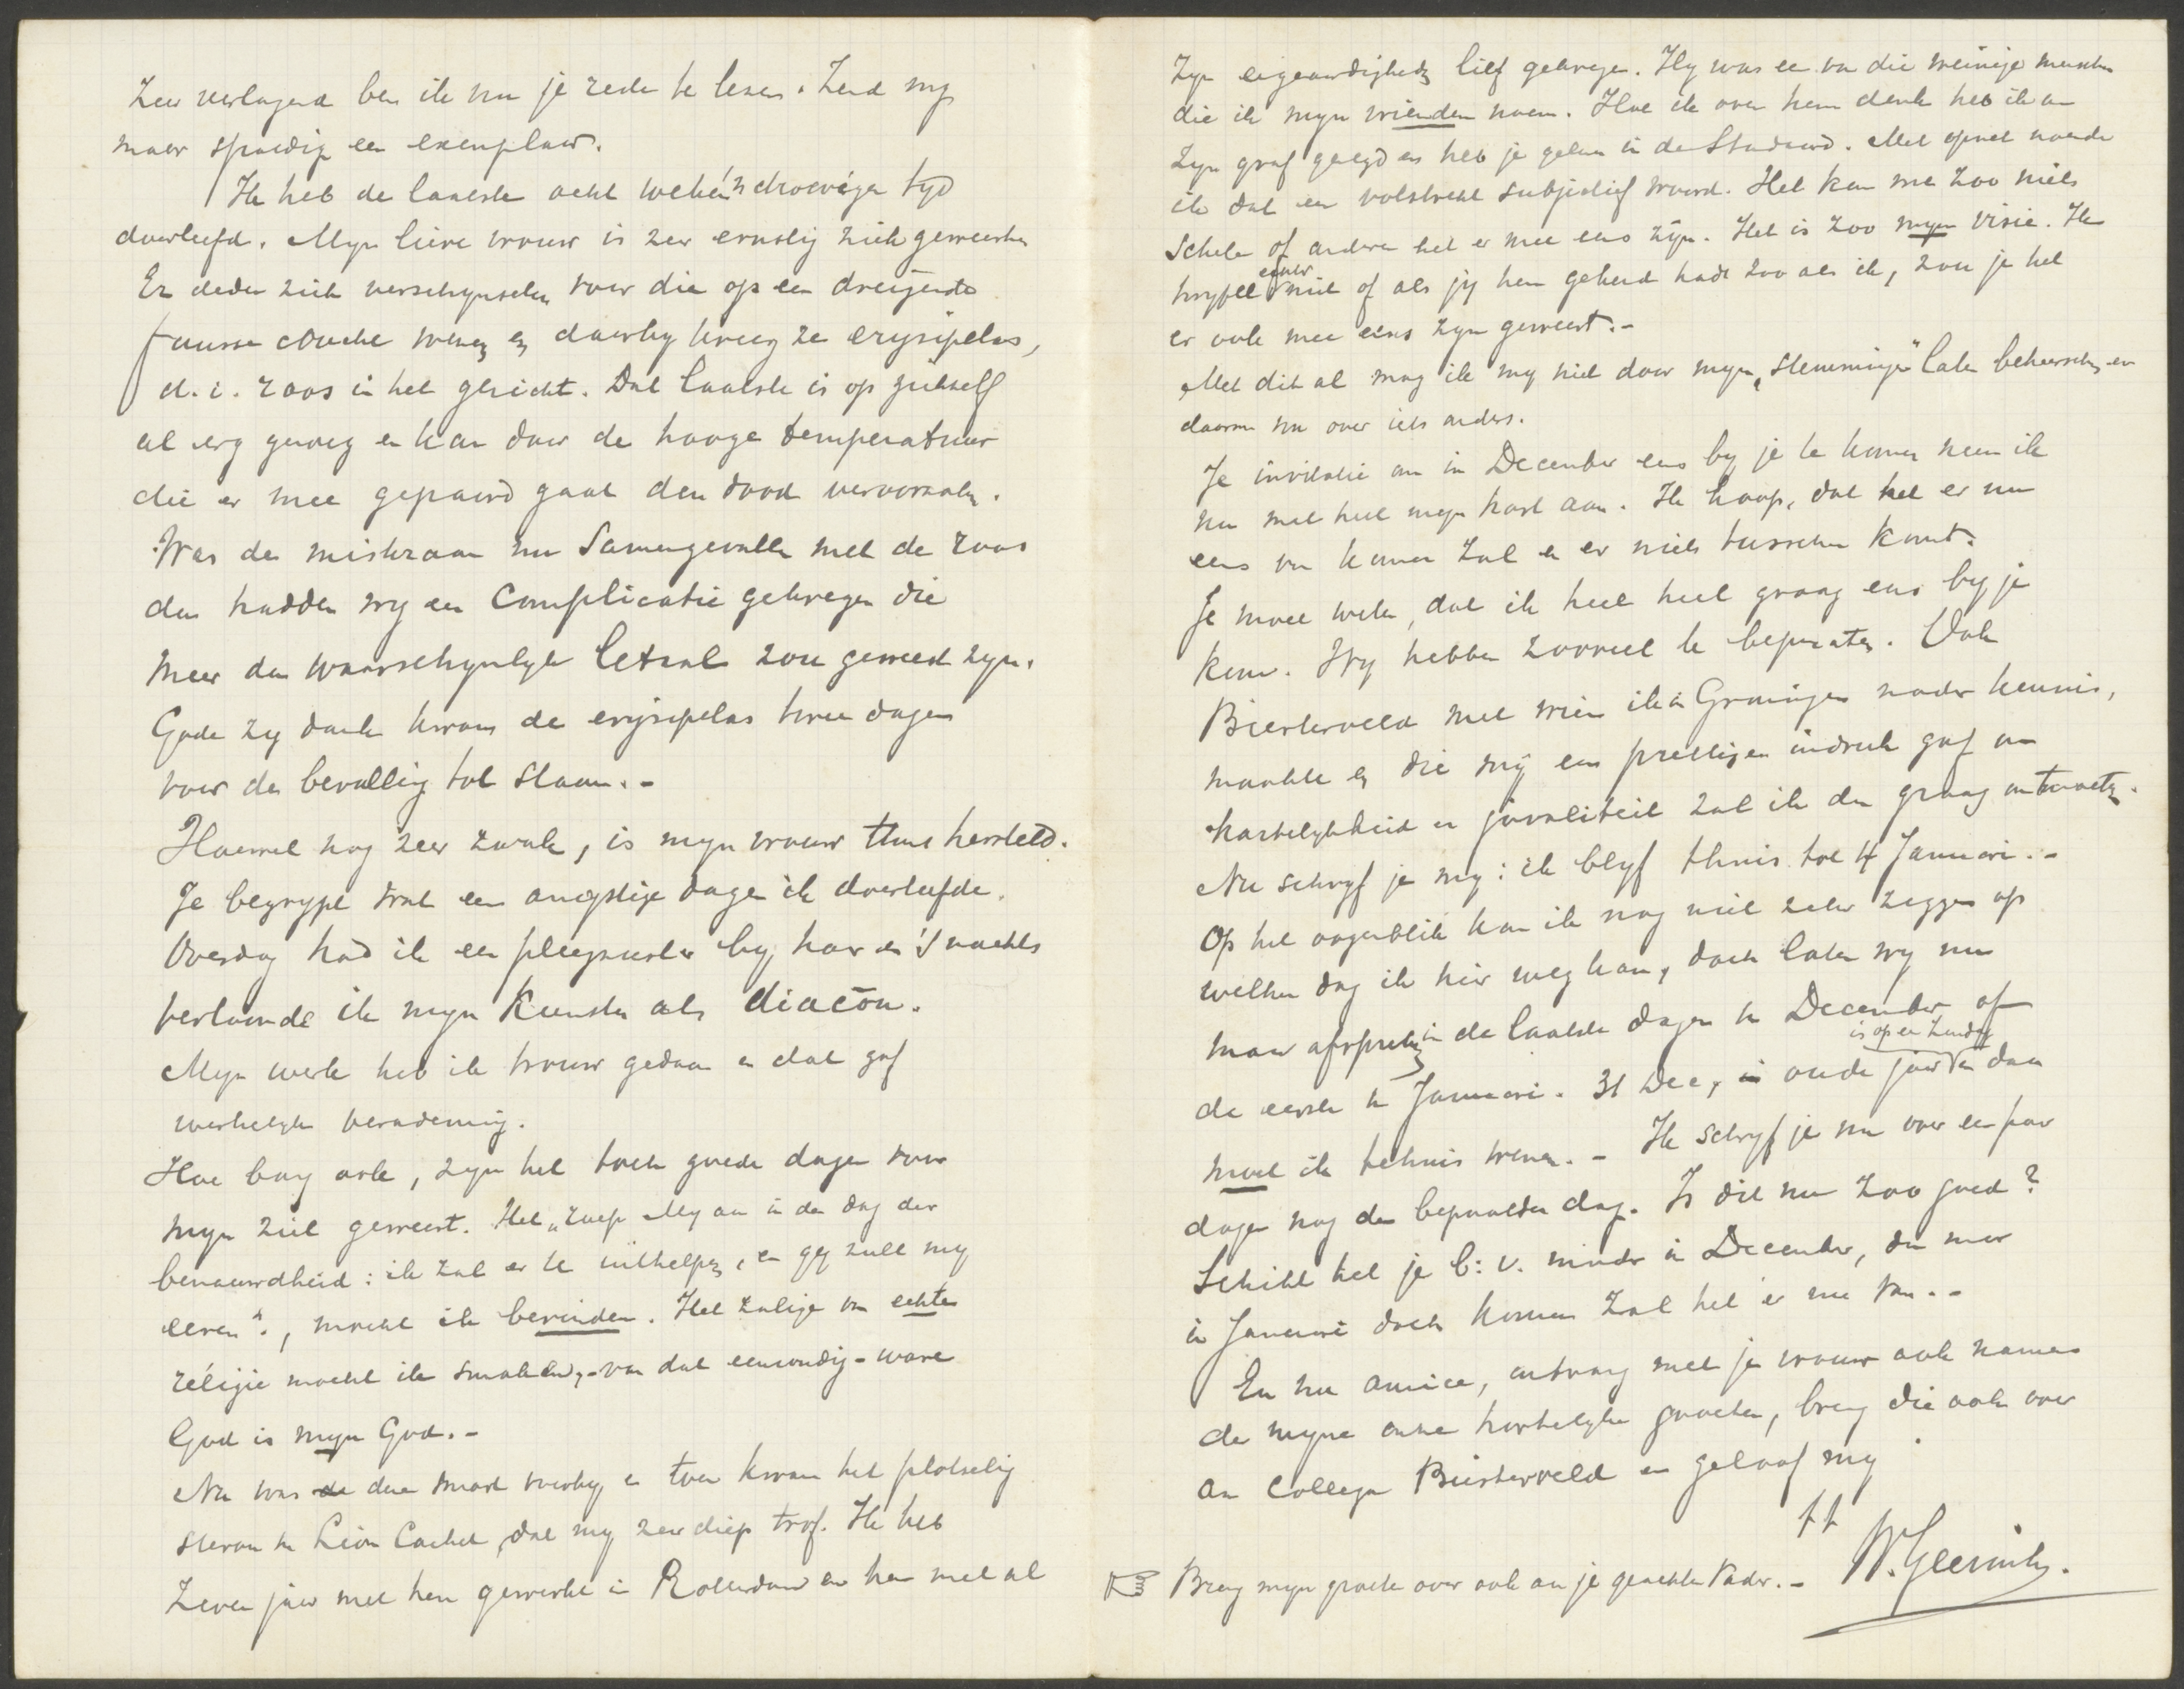 Zeer verlangend ben ik nu je rede te lezen. Zend my
maar spoedig een exemplaar.
Ik heb de laatste acht weken 'n droevige tyd
doorleefd. Myn lieve vrouw is zeer ernstig ziek geweest en
Er deden zich verschynselen voor die op een dreigende
fausse couche wezen en daarby kreeg ze erysipelas,
d.i. roos in het gezicht. Dat laatste is op zichzelf
al erg genoeg en kan door de hooge temperatuur
die er mee gepaard gaat den dood veroorzaken.
Was de miskraam nu samengevallen met de roos
dan hadden wy een complicatie gekregen die
meer dan waarschynlyk letaal zou geweest zyn.
Gode zy dank kwam de erysipelas twee dagen
voor de bevalling tot staan.-
Hoewel nog zeer zwak, is myn vrouw thans hersteld.
Je begrypt wat een angstige dagen ik doorleefde.
Overdag had ik een pleegzuster by haar en 's nachts
vertoonde ik myn kunsten als diacoon.
Myn werk heb ik trouw gedaan en dat gaf
werkelyk verademing.
Hoe bang ook, zyn het toch goede dagen voor
myn ziel geweest. Het „Roep My aan in den dag der
benauwdheid: ik zal er U uithelpen, en gy zult my
eeren"., mocht ik bevinden. Het zalige van echte
religie mocht ik smaken,-van dat eenvoudig-ware
God is myn God.-
Nu was de deze smart voorby en toen kwam het plotselig
sterven van Lion Cachet, dat my zeer diep trof. Ik heb
Zeven jaar met hem gewerkt in Rotterdam en hem met al
Zyn eigenaardigheden lief gekregen. Hy was een van die weinige menschen
die ik myn vrienden noem. Hoe ik over hem denk heb ik aan
Zyn graf gezegd en heb je gelezen in de Standaard. Met opzet noemde
ik dat een volstrekt subjectief woord. Het kan me zoo niets
schelen of anderen het er mee eens zyn. Het is zoo myn visie. Ik
twyfel echter niet of als jy hem gekend hadt zoo als ik, zou je het
er ook mee eens zyn geweest.-
Met dit al mag ik my niet door myn „stemmingen" laten beheerschen en
daarom nu over iets anders.
Je invitatie om in December eens by je te komen neem ik
nu met heel myn hart aan. Ik hoop, dat het er nu
eens van komen zal en er niets tusschen komt.
Je moet weten, dat ik heel heel graag eens by je
kom. Wy hebben zooveel te bepraten. Ook
Biesterveld met wien ik in Groningen nader kennis,
maakte en die my een prettigen indruk gaf van
hartelykheid en jovialiteit zal ik dan graag ontmoeten.
Nu schryf je my: ik blyf thuis tot 4 Januari.-
Op het oogenblik kan ik nog niet zeker zeggen op
welken dag ik hier weg kan, doch laten wy nu
maar afspreken in de laatste dagen van December of
de eerste van Januari. 31 Dec, oude jaar is op een Zondag en dan
moet ik tehuis wezen.- Ik schryf je nu over een paar
dagen nog den bepaalden dag. Is dit nu zoo goed?
Schikt het je b.v. minder in December, dan maar
in Januari doch komen zal het er nu van.-
En nu amice, ontvang met je vrouw ook namens
de myne onze hartelyke groeten, breng die ook over
aan collega Biesterveld en geloof my
tt
W. Geesink.
☞ Breng myn groeten over ook aan je geachten Vader.-